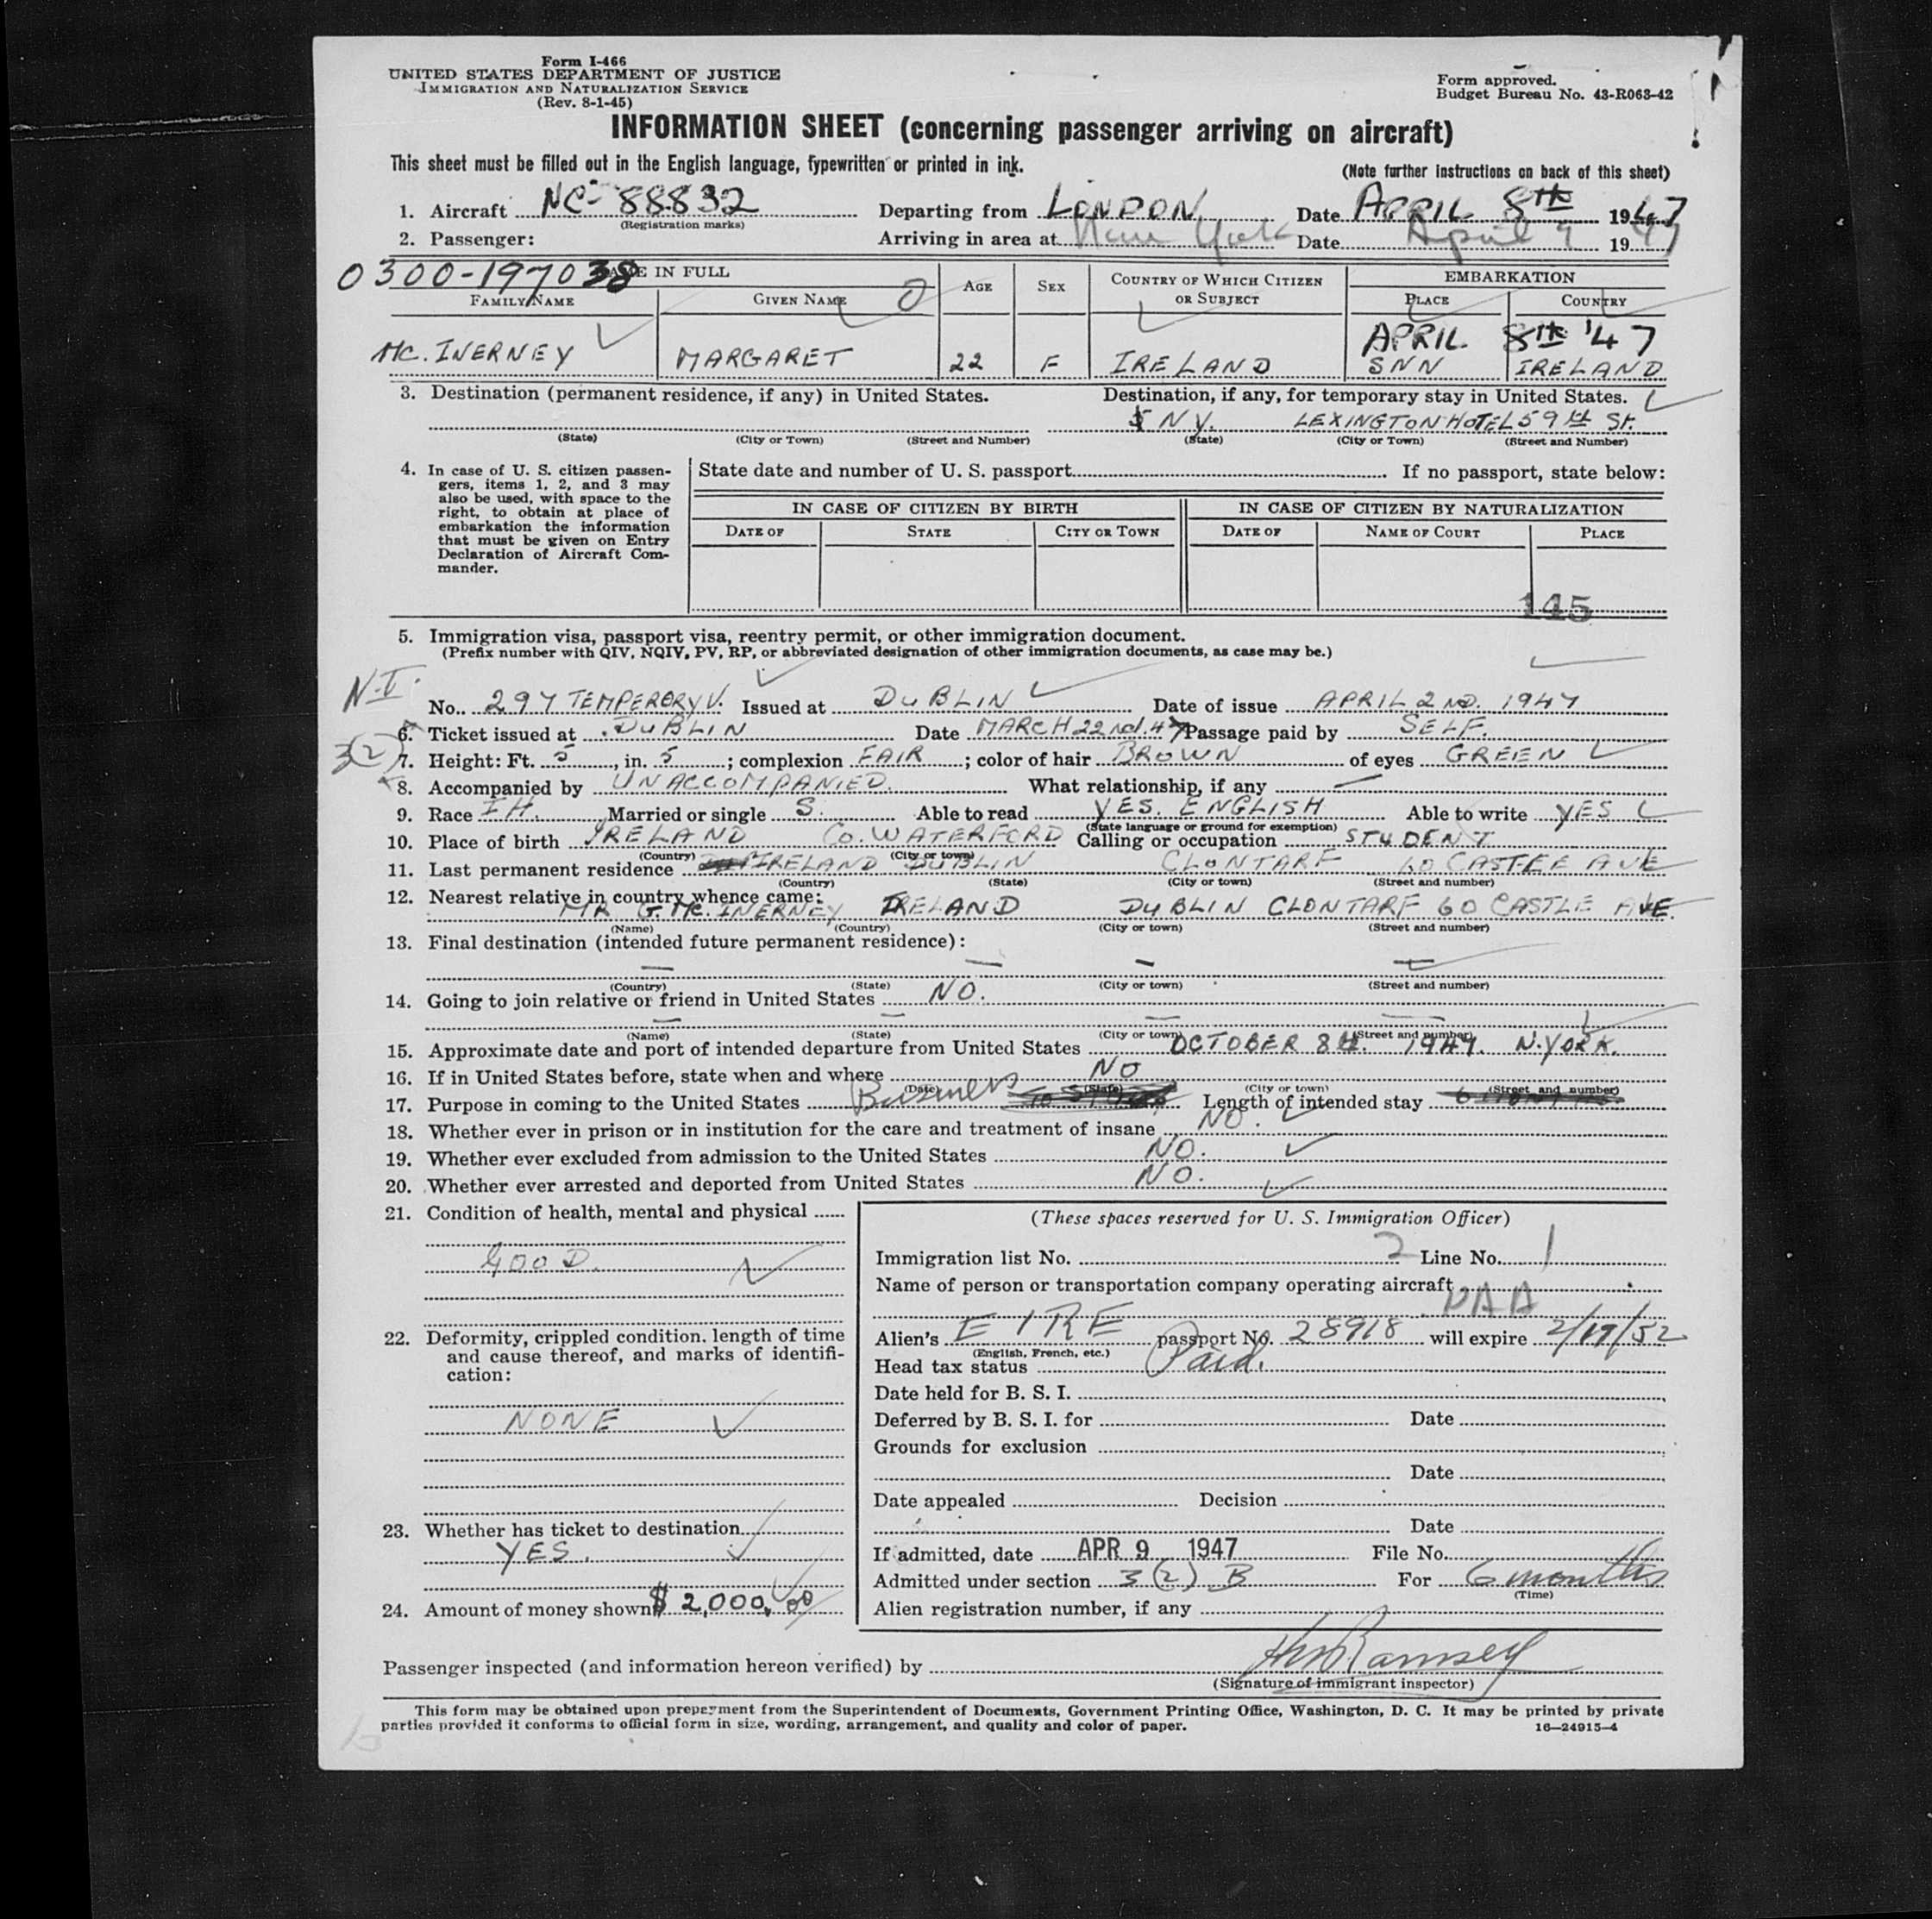 Form I-466
UNITED STATES DEPARTMENT OF JUSTICE
IMMIGRATION AND NATURALIZATION SERVICE
(Rev. 8-1-45)
Form approved.
Budget Bureau No. 43-R063-42
INFORMATION SHEET (concerning passenger arriving on aircraft)
This sheet must be filled out in the English language, typewritten or printed in ink.
(Note further instructions on back of this sheet)
1. Aircraft NC-88832 Departing from LONDON Date APRIL 8th 1947
(Registration marks)
2. Passenger: Arriving in area at New York Date April 9 1947
0300-197038
NAME IN FULL AGE SEX COUNTRY OF WHICH CITIZEN OR SUBJECT EMBARKATION
FAMILY NAME GIVEN NAME PLACE COUNTRY
APRIL 8th '47
MC. INERNEY MARGARET 22 F IRELAND SNN IRELAND
3. Destination (permanent residence, if any) in United States. Destination, if any, for temporary stay in United States.
N Y. LEXINGTON HOTEL 59th St.
(State) (City or Town) (Street and Number) (State) (City or Town) (Street and Number)
4. In case of U. S. citizen passengers, items 1, 2, and 3 may also be used, with space to the right, to obtain at place of embarkation the information that must be given on Entry Declaration of Aircraft Commander.
State date and number of U. S. passport If no passport, state below:
IN CASE OF CITIZEN BY BIRTH IN CASE OF CITIZEN BY NATURALIZATION
DATE OF STATE CITY OR TOWN DATE OF NAME OF COURT PLACE
145
5. Immigration visa, passport visa, reentry permit, or other immigration document.
(Prefix number with QIV, NQIV, PV, RP, or abbreviated designation of other immigration documents, as case may be.)
N.I.
No. 297 TEMPERORY V. Issued at DUBLIN Date of issue APRIL 2ND. 1947
6. Ticket issued at DUBLIN Date MARCH 22nd. 47 Passage paid by SELF.
3(2)
7. Height: Ft. 5, in. 5; complexion FAIR; color of hair BROWN of eyes GREEN
8. Accompanied by UNACCOMPANIED. What relationship, if any —
9. Race IH. Married or single S. Able to read YES. ENGLISH Able to write YES
(State language or ground for exemption)
10. Place of birth IRELAND Co. WATERFORD Calling or occupation STUDENT
(Country) (City or town)
11. Last permanent residence IRELAND DUBLIN CLONTARF 60 CASTLE AVE
(Country) (State) (City or town) (Street and number)
12. Nearest relative in country whence came:
MR G. MC. INERNEY IRELAND DUBLIN CLONTARF 60 CASTLE AVE.
(Name) (Country) (City or town) (Street and number)
13. Final destination (intended future permanent residence):
— — — —
(Country) (State) (City or town) (Street and number)
14. Going to join relative or friend in United States NO.
— — — —
(Name) (State) (City or town) (Street and number)
15. Approximate date and port of intended departure from United States OCTOBER 8th. 1947. N.YORK.
16. If in United States before, state when and where NO
(Date) (State) (City or town) (Street and number)
17. Purpose in coming to the United States Business Length of intended stay
18. Whether ever in prison or in institution for the care and treatment of insane NO.
19. Whether ever excluded from admission to the United States NO.
20. Whether ever arrested and deported from United States NO.
21. Condition of health, mental and physical
GOOD.
22. Deformity, crippled condition, length of time and cause thereof, and marks of identification:
NONE
23. Whether has ticket to destination
YES.
24. Amount of money shown $ 2,000.00
(These spaces reserved for U. S. Immigration Officer)
Immigration list No. 2 Line No. 1
Name of person or transportation company operating aircraft
PAA
Alien's EIRE passport No. 28918 will expire 2/17/52
(English, French, etc.)
Head tax status Paid.
Date held for B. S. I.
Deferred by B. S. I. for Date
Grounds for exclusion
Date
Date appealed Decision
Date
If admitted, date APR 9 1947 File No.
Admitted under section 3(2) B For 6 months
(Time)
Alien registration number, if any
Passenger inspected (and information hereon verified) by Ramsey
(Signature of immigrant inspector)
This form may be obtained upon prepayment from the Superintendent of Documents, Government Printing Office, Washington, D. C. It may be printed by private
parties provided it conforms to official form in size, wording, arrangement, and quality and color of paper.
16—24915-4